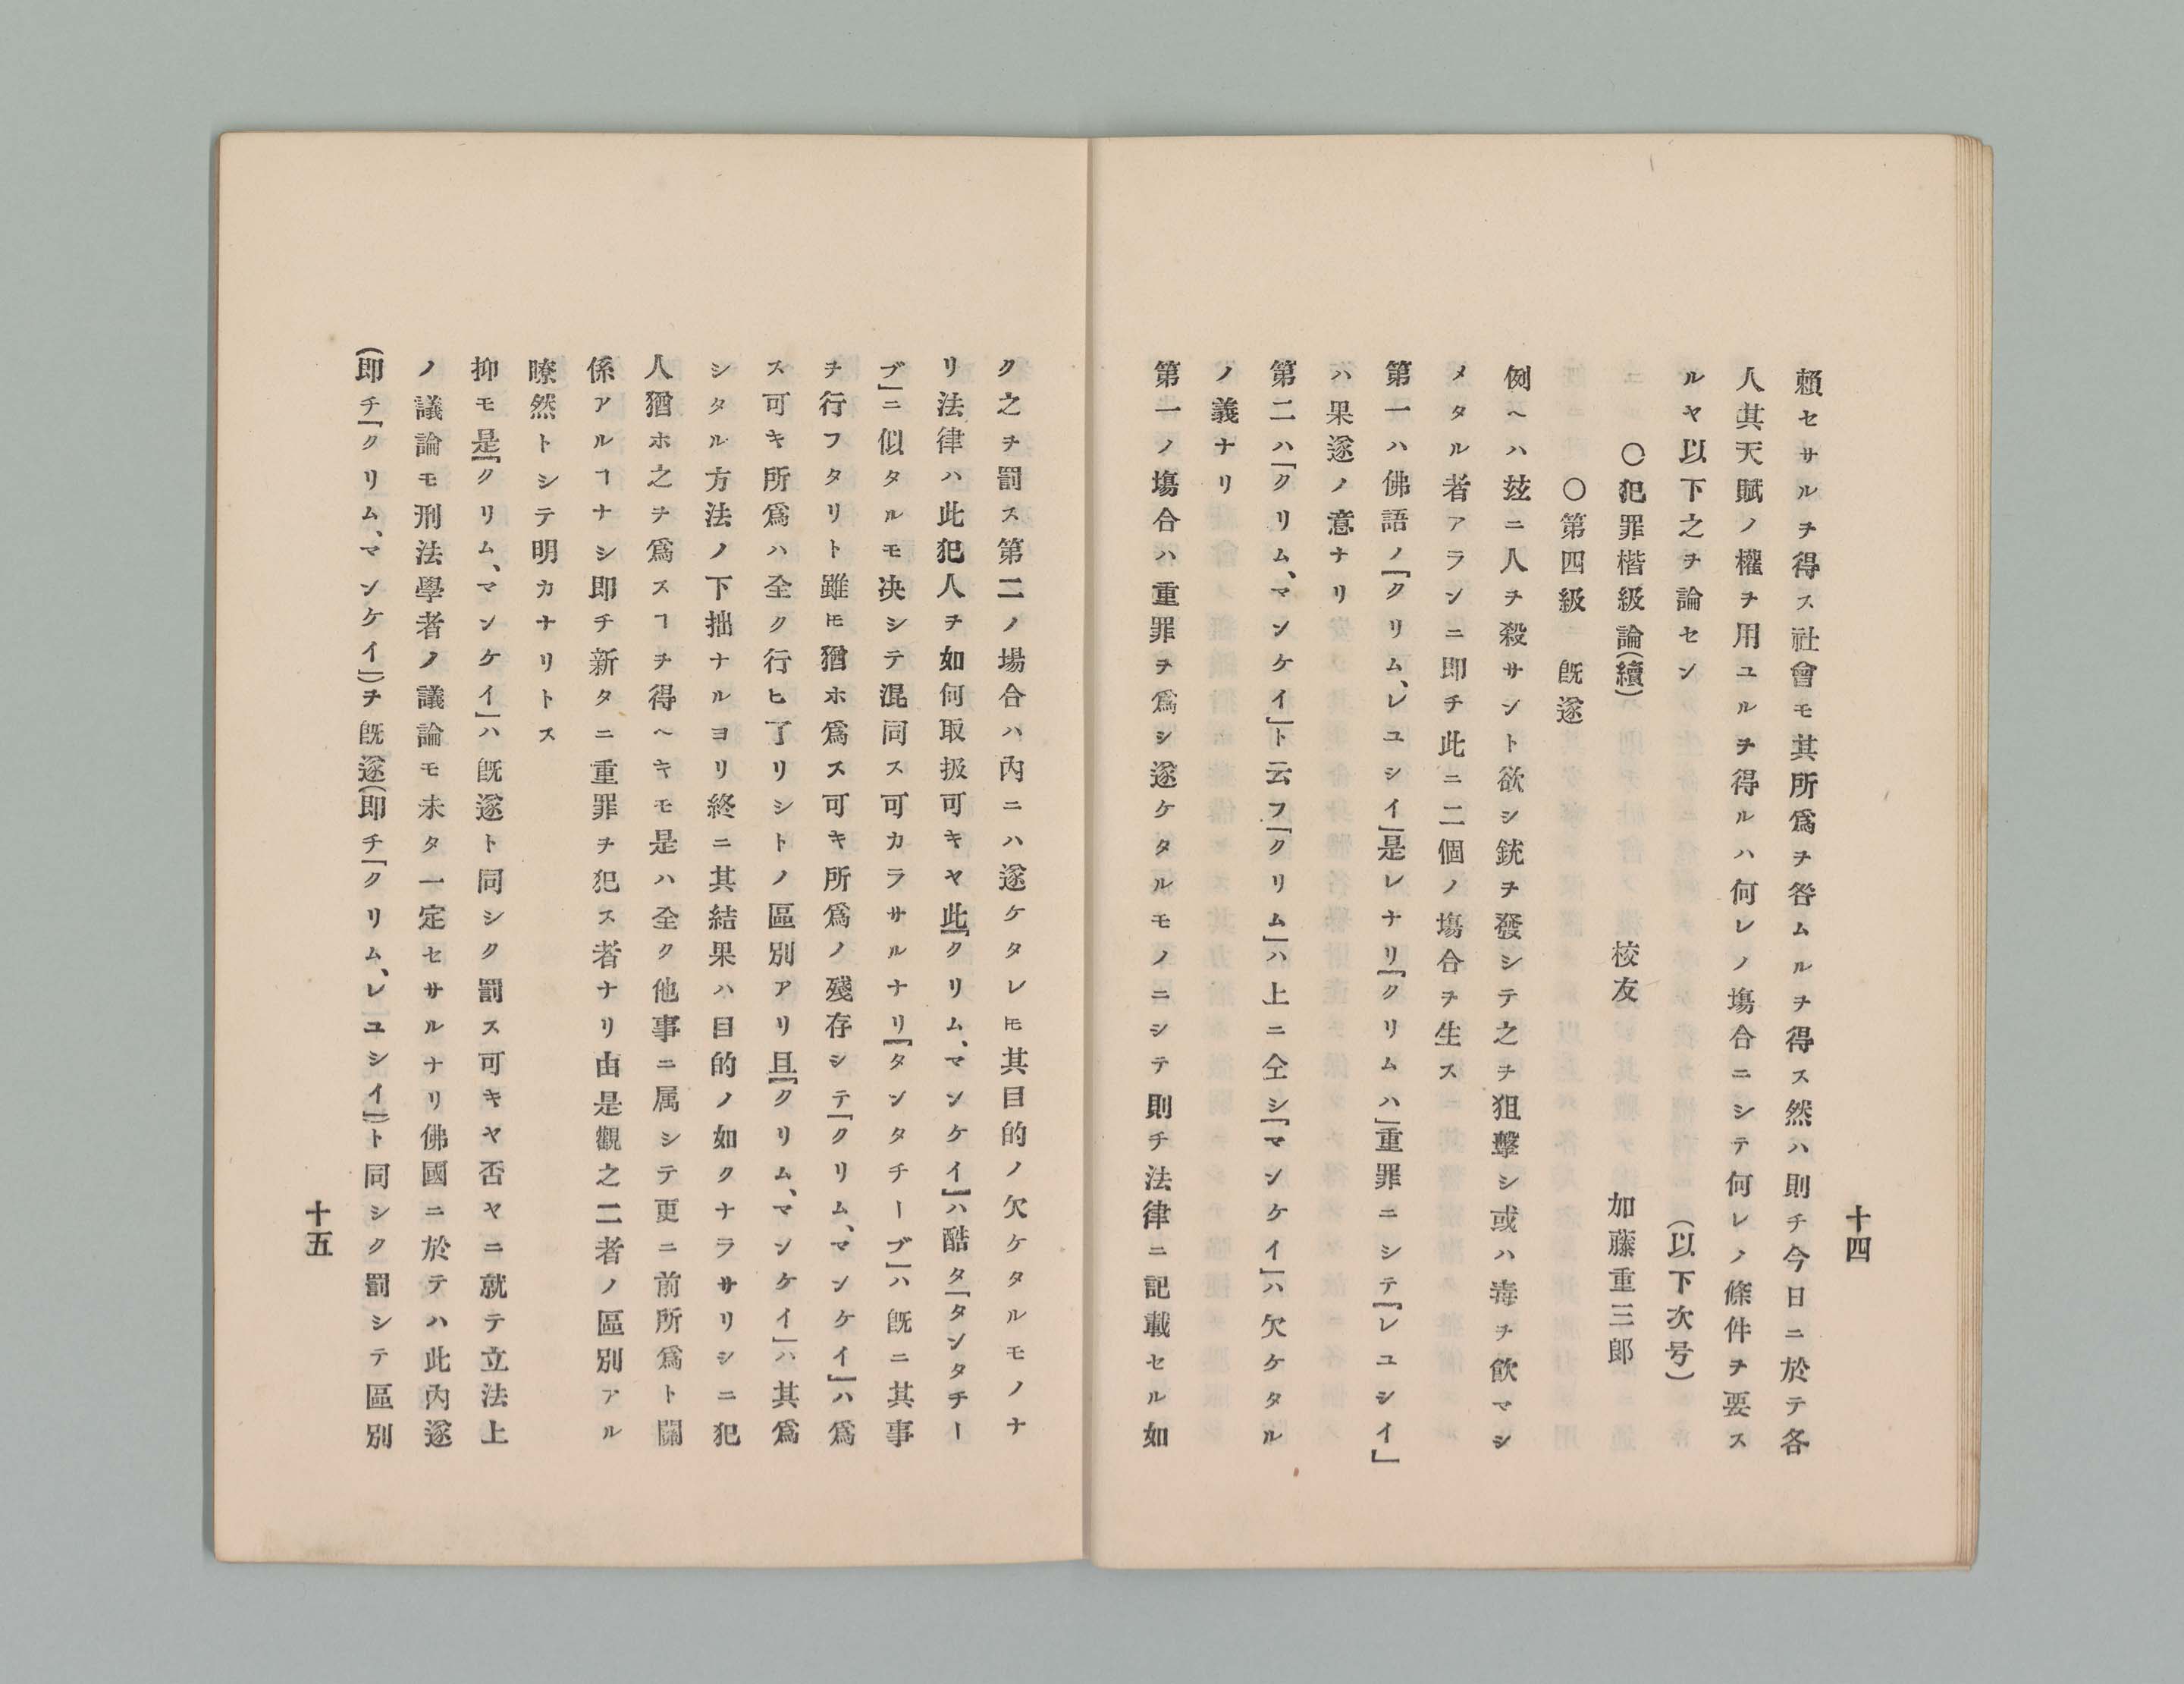 十四
賴セサルヲ得ス社會モ其所爲ヲ咎ムルヲ得ス然ハ則チ今日ニ於テ各
人其天賦ノ權ヲ用ユルヲ得ルハ何レノ塲合ニシテ何レノ條件ヲ要ス
ルヤ以下之ヲ論セン　(以下次号)
○犯罪楷級論(續)　校友　加藤重三郎
○第四級　旣遂
例ヘハ玆ニ人ヲ殺サント欲シ銃ヲ發シテ之ヲ狙擊シ或ハ毒ヲ飮マシ
メタル者アランニ即チ此ニ二個ノ塲合ヲ生ス
第一ハ佛語ノ「クリム、レユシイ」是レナリ「クリムハ」重罪ニシテ「レユシイ」
ハ果遂ノ意ナリ
第二ハ「クリム、マンケイ」ト云フ「クリム」ハ上ニ仝シ「マンケイ」ハ欠ケタル
ノ義ナリ
第一ノ塲合ハ重罪ヲ爲シ遂ケタルモノニシテ則チ法律ニ記載セル如
ク之ヲ罰ス第二ノ場合ハ內ニハ遂ケタレ𪜈其目的ノ欠ケタルモノナ
リ法律ハ此犯人ヲ如何取扱可キヤ此「クリム、マンケイ」ハ酷タ「タンタチー
ブ」ニ似タルモ决シテ混同ス可カラサルナリ「タンタチーブ」ハ旣ニ其事
ヲ行フタリト雖𪜈猶ホ爲ス可キ所爲ノ殘存シテ「クリム、マンケイ」ハ爲
ス可キ所爲ハ全ク行ヒ了リシトノ區別アリ且「クリム、マンケイ」ハ其爲
シタル方法ノ下拙ナルヨリ終ニ其結果ハ目的ノ如クナラサリシニ犯
人猶ホ之ヲ爲スヿヲ得ヘキモ是ハ全ク他事ニ属シテ更ニ前所爲ト關
係アルヿナシ即チ新タニ重罪ヲ犯ス者ナリ由是觀之二者ノ區別アル
瞭然トシテ明カナリトス
抑モ是「クリム、マンケイ」ハ旣遂ト同シク罰ス可キヤ否ヤニ就テ立法上
ノ議論モ刑法學者ノ議論モ未タ一定セサルナリ佛國ニ於テハ此內遂
(即チ「クリム、マンケイ」)ヲ旣遂(即チ「クリム、レユシイ」)ト同シク罰シテ區別
十五